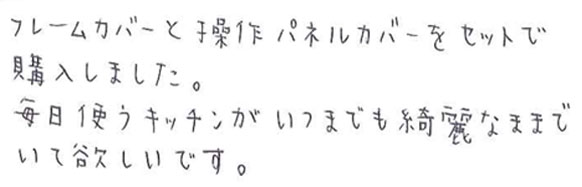 フレームカバーと操作パネルカバーをセットで
購入しました。
毎日使うキッチンがいつまでも綺麗なままで
いて欲しいです。